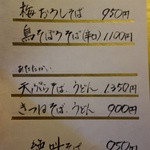 梅おろしそば 950円
鳥そぼろそば(辛口) 1100円
あたたかい
天ぷらそば、うどん 1350円
きつねそば、うどん 900円
そば 950円